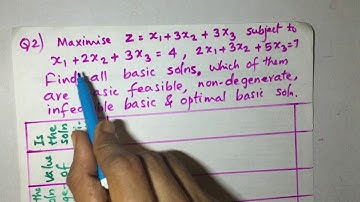 Q2) Maximise Z = x₁ + 3x₂ + 3x₃ subject to
x₁ + 2x₂ + 3x₃ = 4, 2x₁ + 3x₂ + 5x₃ = 7
Find all basic solns, which of them
are basic feasible, non-degenerate,
infeasible basic & optimal basic soln.
Is
the
soln
the
value
of